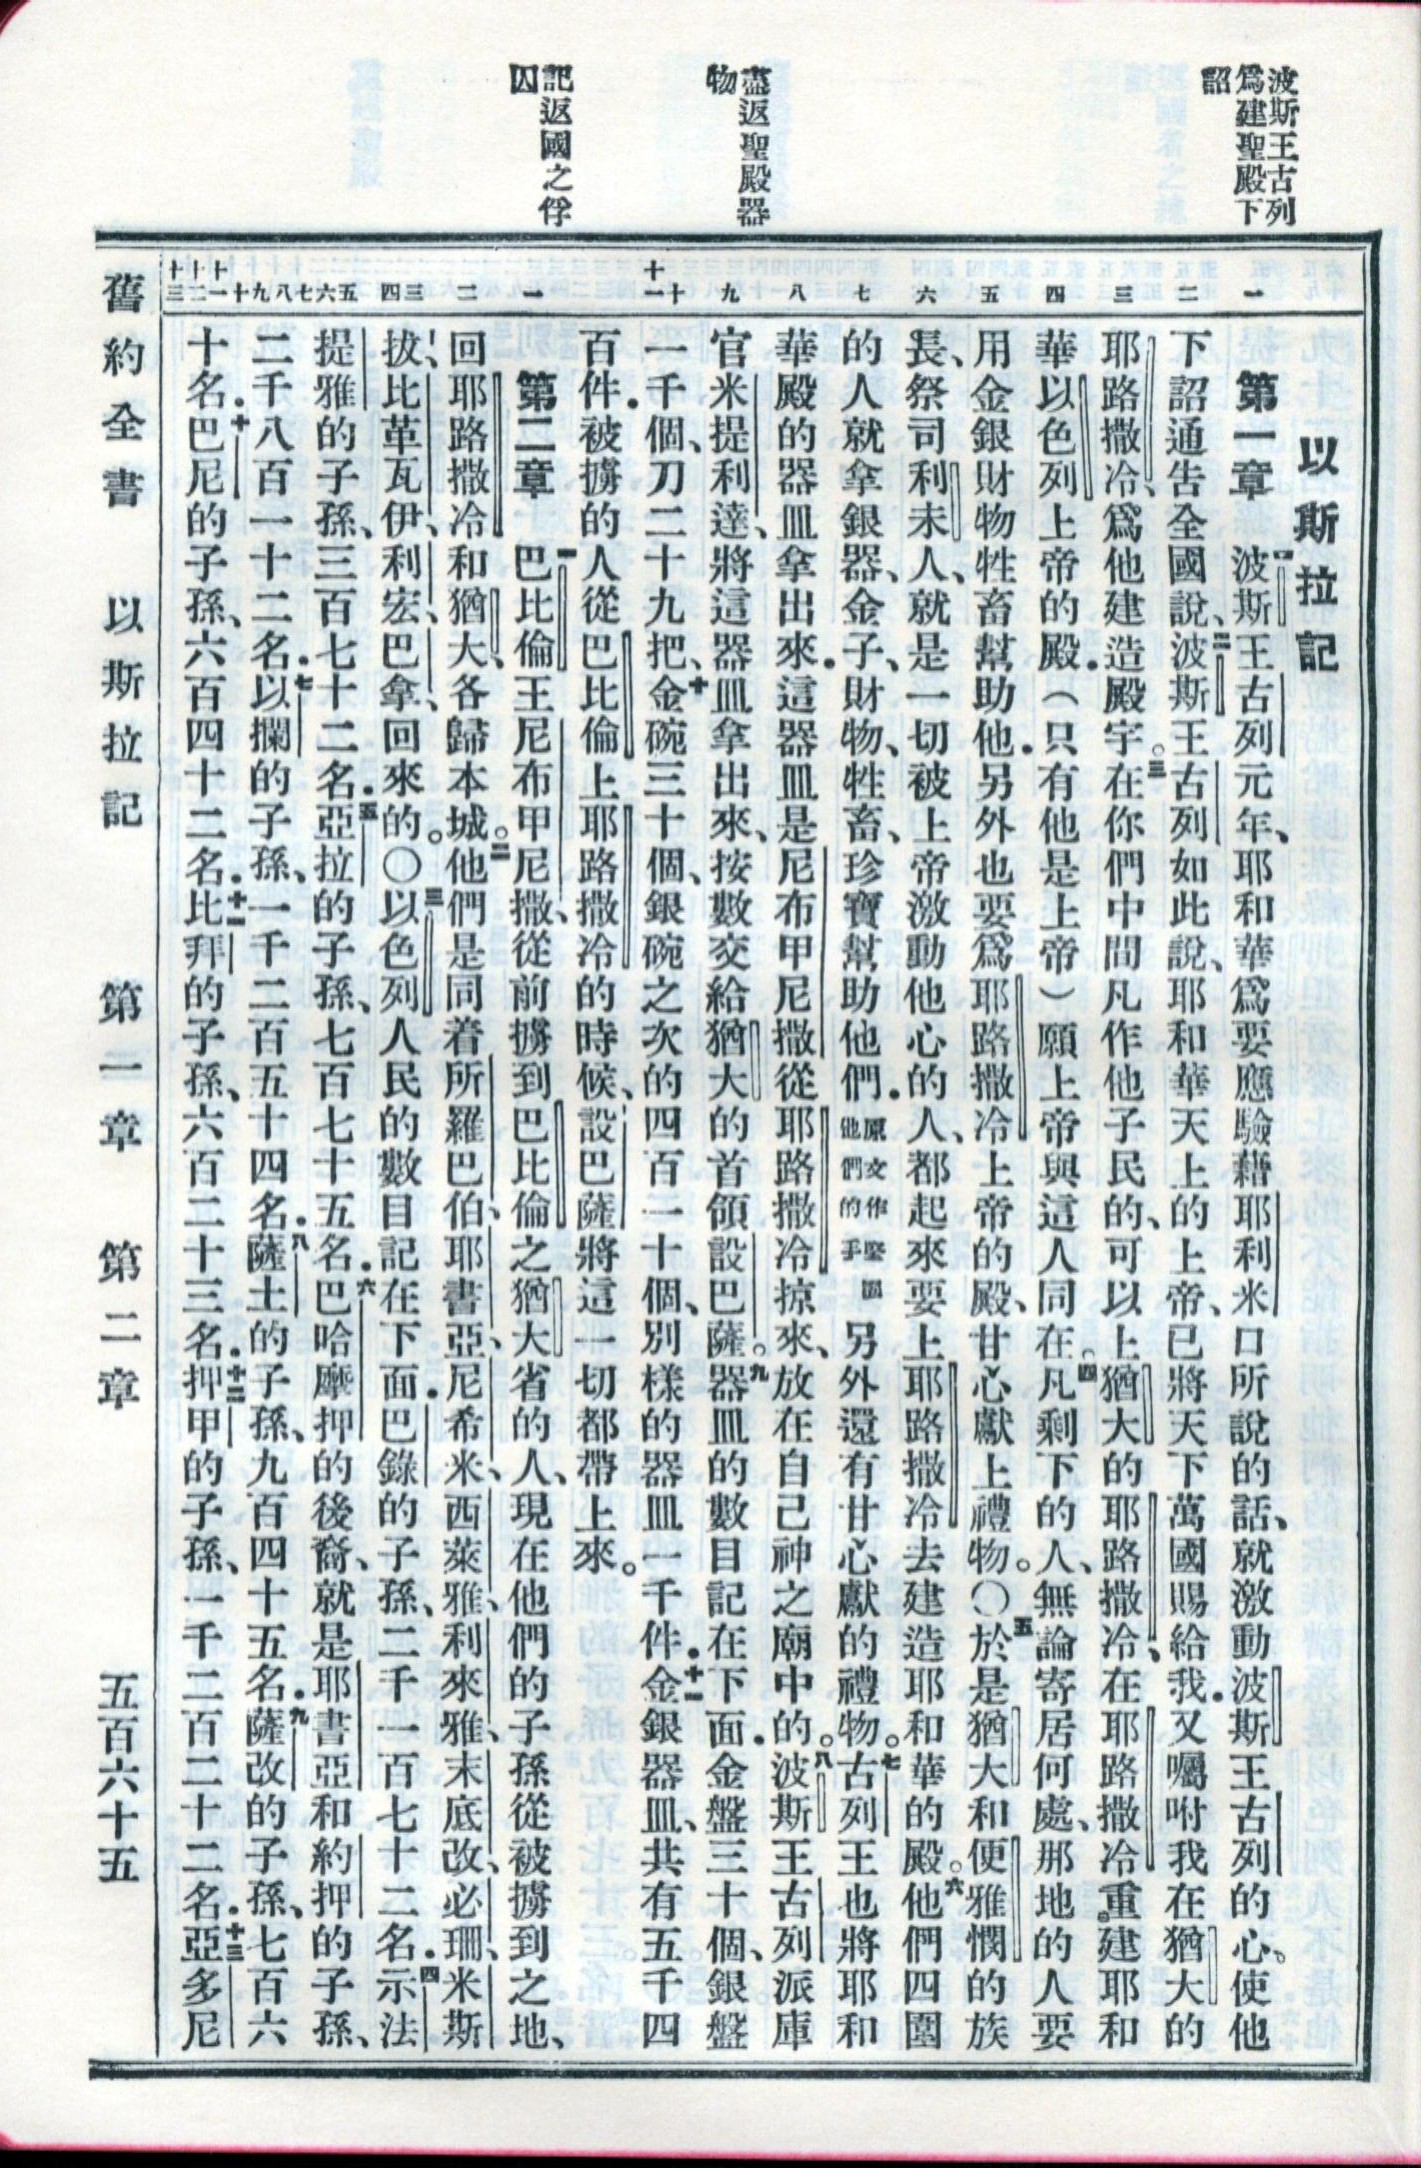 波斯王古列
爲建聖殿下
詔
盡返聖殿器
物
記返國之俘
囚
一
二
三
四
五
六
七
八
九
十
十一
一
二
三
四
五
六
七
八
九
十
十一
十二
十三
以斯拉記
第一章 一波斯王古列元年、耶和華爲要應驗藉耶利米口所說的話、就激動波斯王古列的心。使他
下詔通告全國說、二波斯王古列如此說、耶和華天上的上帝、已將天下萬國賜給我．又囑咐我在猶大的
耶路撒冷、爲他建造殿宇。三在你們中間凡作他子民的、可以上猶大的耶路撒冷、在耶路撒冷重建耶和
華以色列上帝的殿．（只有他是上帝）願上帝與這人同在。四凡剩下的人、無論寄居何處、那地的人要
用金銀財物牲畜幫助他．另外也要爲耶路撒冷上帝的殿、甘心獻上禮物。〇五於是猶大和便雅憫的族
長、祭司利未人、就是一切被上帝激動他心的人、都起來要上耶路撒冷去建造耶和華的殿。六他們四圍
的人就拿銀器、金子、財物、牲畜、珍寶幫助他們．原文作堅固他們的手另外還有甘心獻的禮物。七古列王也將耶和
華殿的器皿拿出來．這器皿是尼布甲尼撒從耶路撒冷掠來、放在自己神之廟中的。八波斯王古列派庫
官米提利達、將這器皿拿出來、按數交給猶大的首領設巴薩。九器皿的數目記在下面．金盤三十個、銀盤
一千個、刀二十九把、十金碗三十個、銀碗之次的四百一十個、別樣的器皿一千件．十一金銀器皿、共有五千四
百件．被擄的人從巴比倫上耶路撒冷的時候、設巴薩將這一切都帶上來。
第二章 一巴比倫王尼布甲尼撒、從前擄到巴比倫之猶大省的人、現在他們的子孫從被擄到之地、
回耶路撒冷和猶大、各歸本城。二他們是同着所羅巴伯、耶書亞、尼希米、西萊雅、利來雅、末底改、必珊、米斯
拔、比革瓦伊、利宏、巴拿、回來的。〇三以色列人民的數目記在下面．巴錄的子孫、二千一百七十二名．四示法
提雅的子孫、三百七十二名．五亞拉的子孫、七百七十五名．六巴哈摩押的後裔、就是耶書亞和約押的子孫、
二千八百一十二名．七以攔的子孫、一千二百五十四名．八薩土的子孫、九百四十五名．九薩改的子孫、七百六
十名．十巴尼的子孫、六百四十二名．十一比拜的子孫、六百二十三名．十二押甲的子孫、一千二百二十二名．十三亞多尼
舊約全書 以斯拉記 第一章 第二章 五百六十五